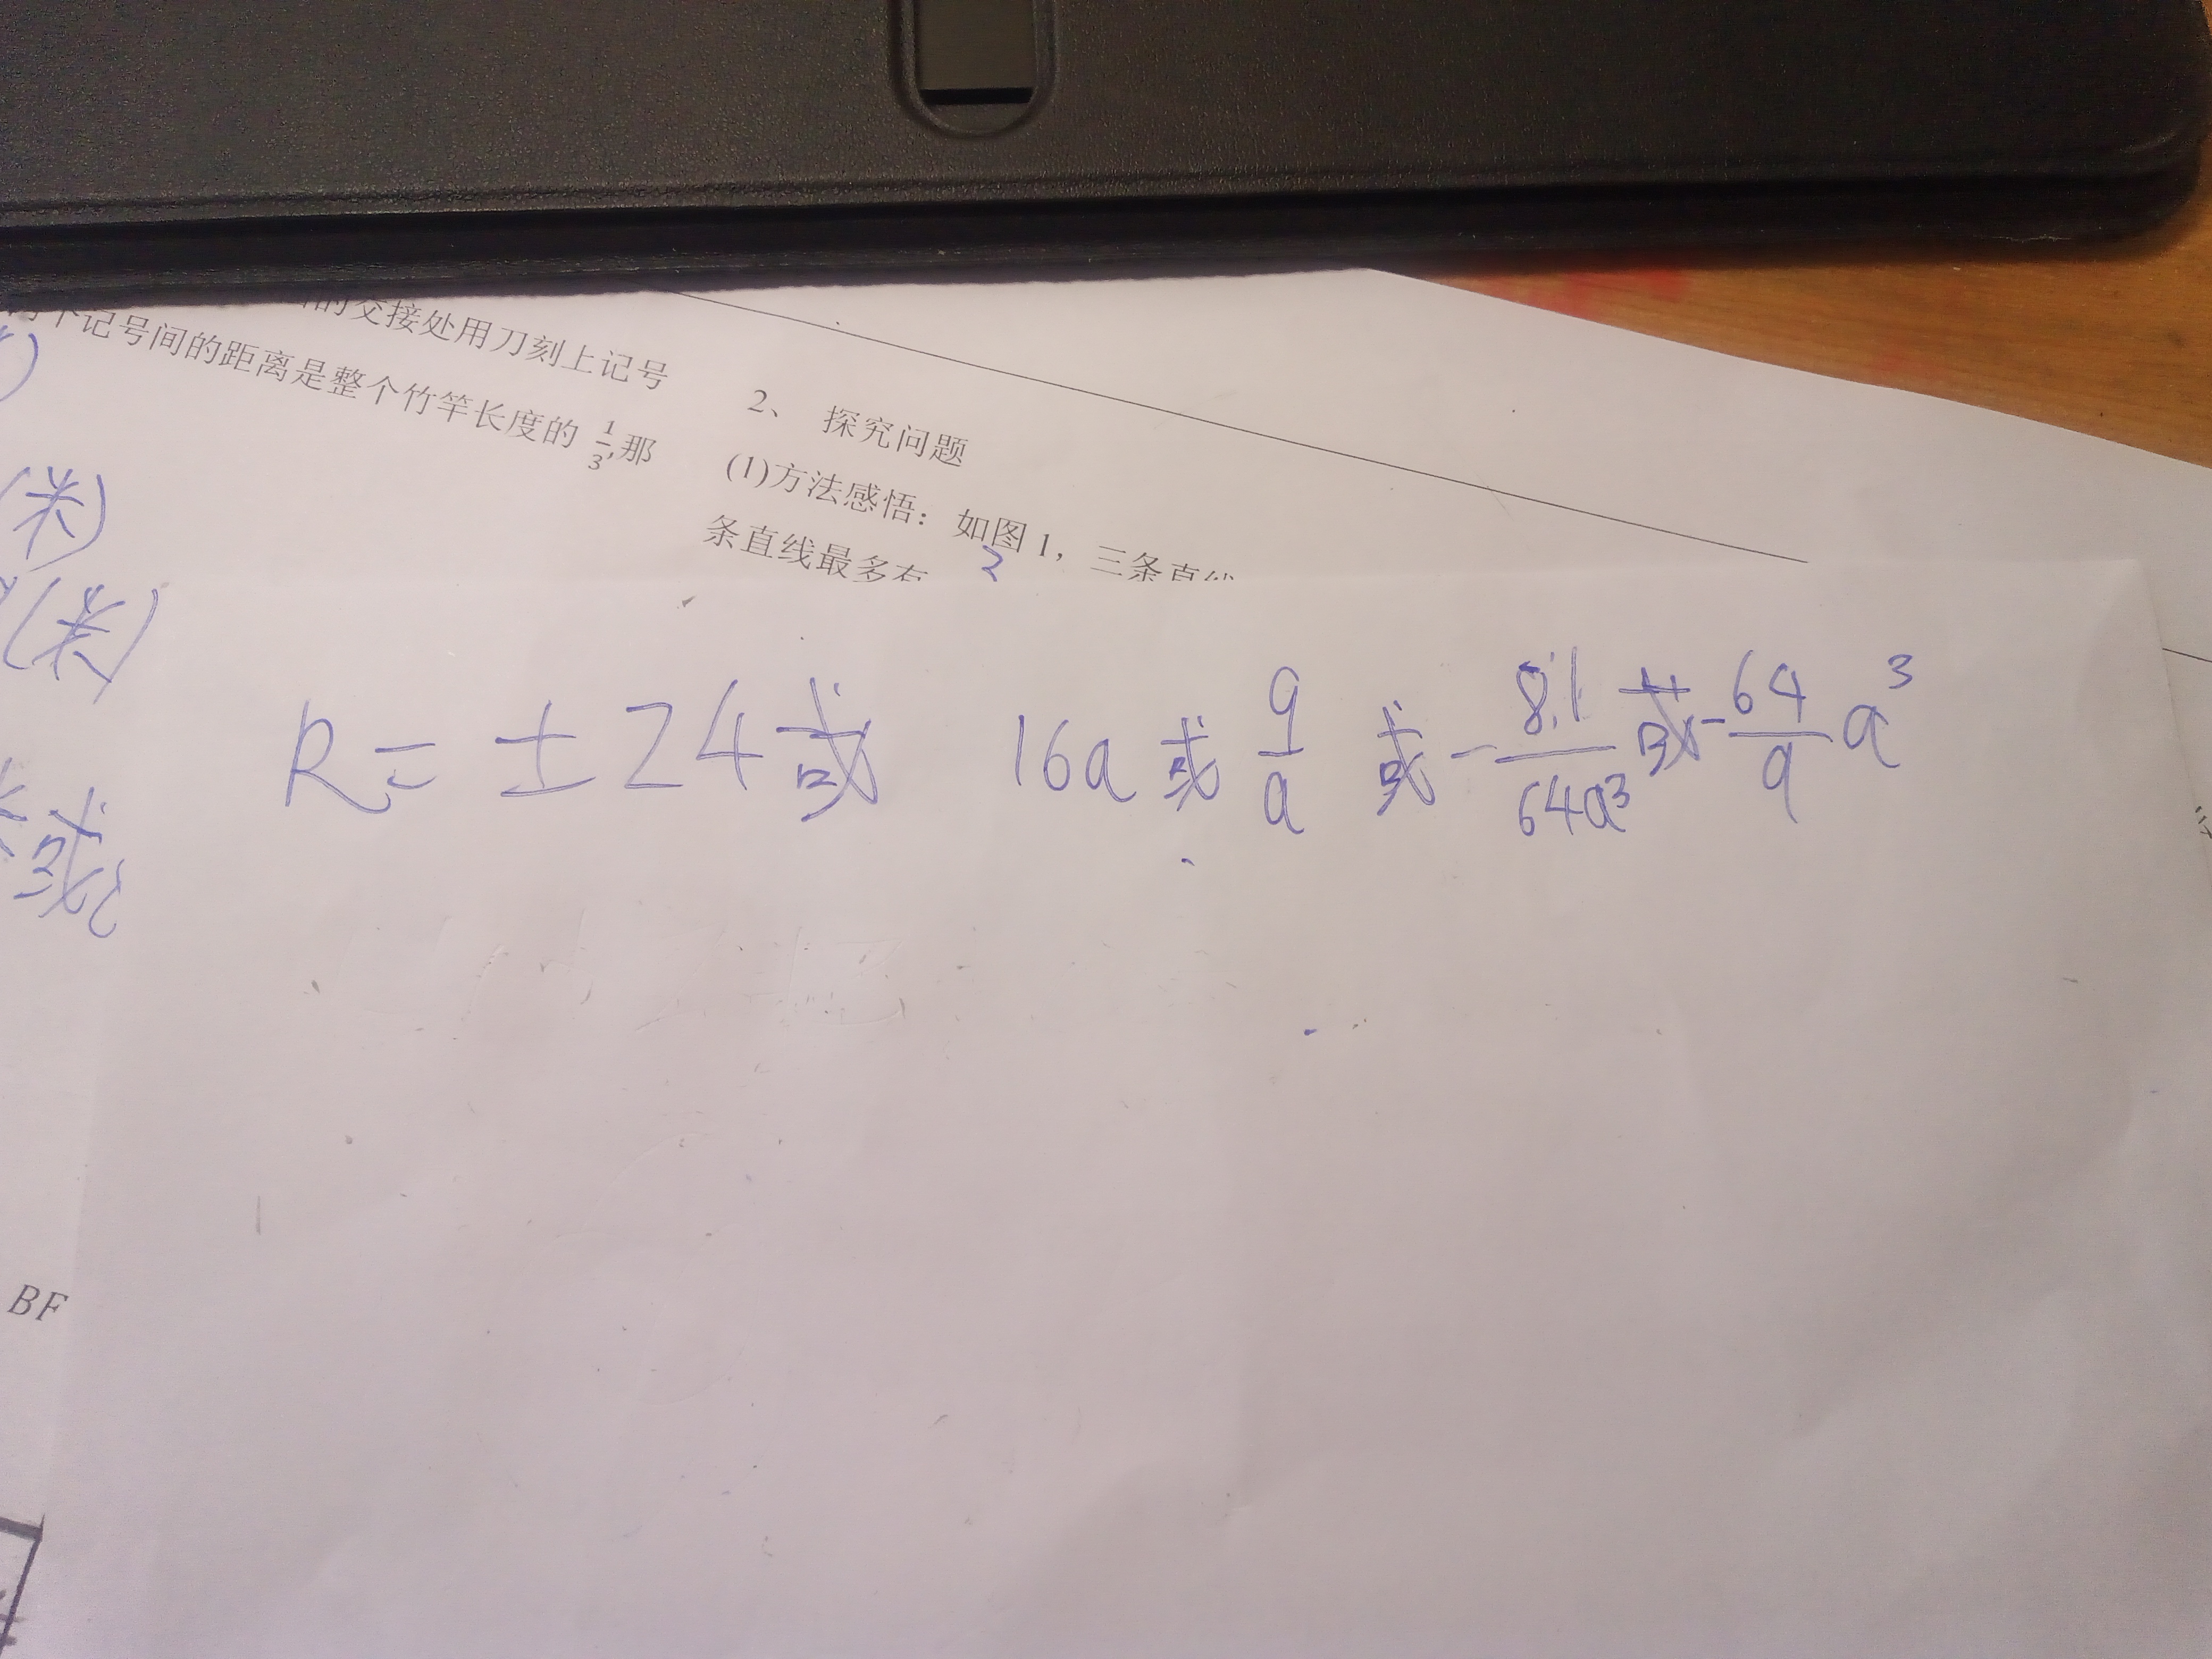 的交接处用刀刻上记号
个记号间的距离是整个竹竿长度的 1/3,那
2、 探究问题
(1)方法感悟：如图 1，三条直线
条直线最多有 3
(米)
(米)
或
R = ±24 或 16a 或 9/a 或 -81/64a³ 或 -64/9 a³
BF